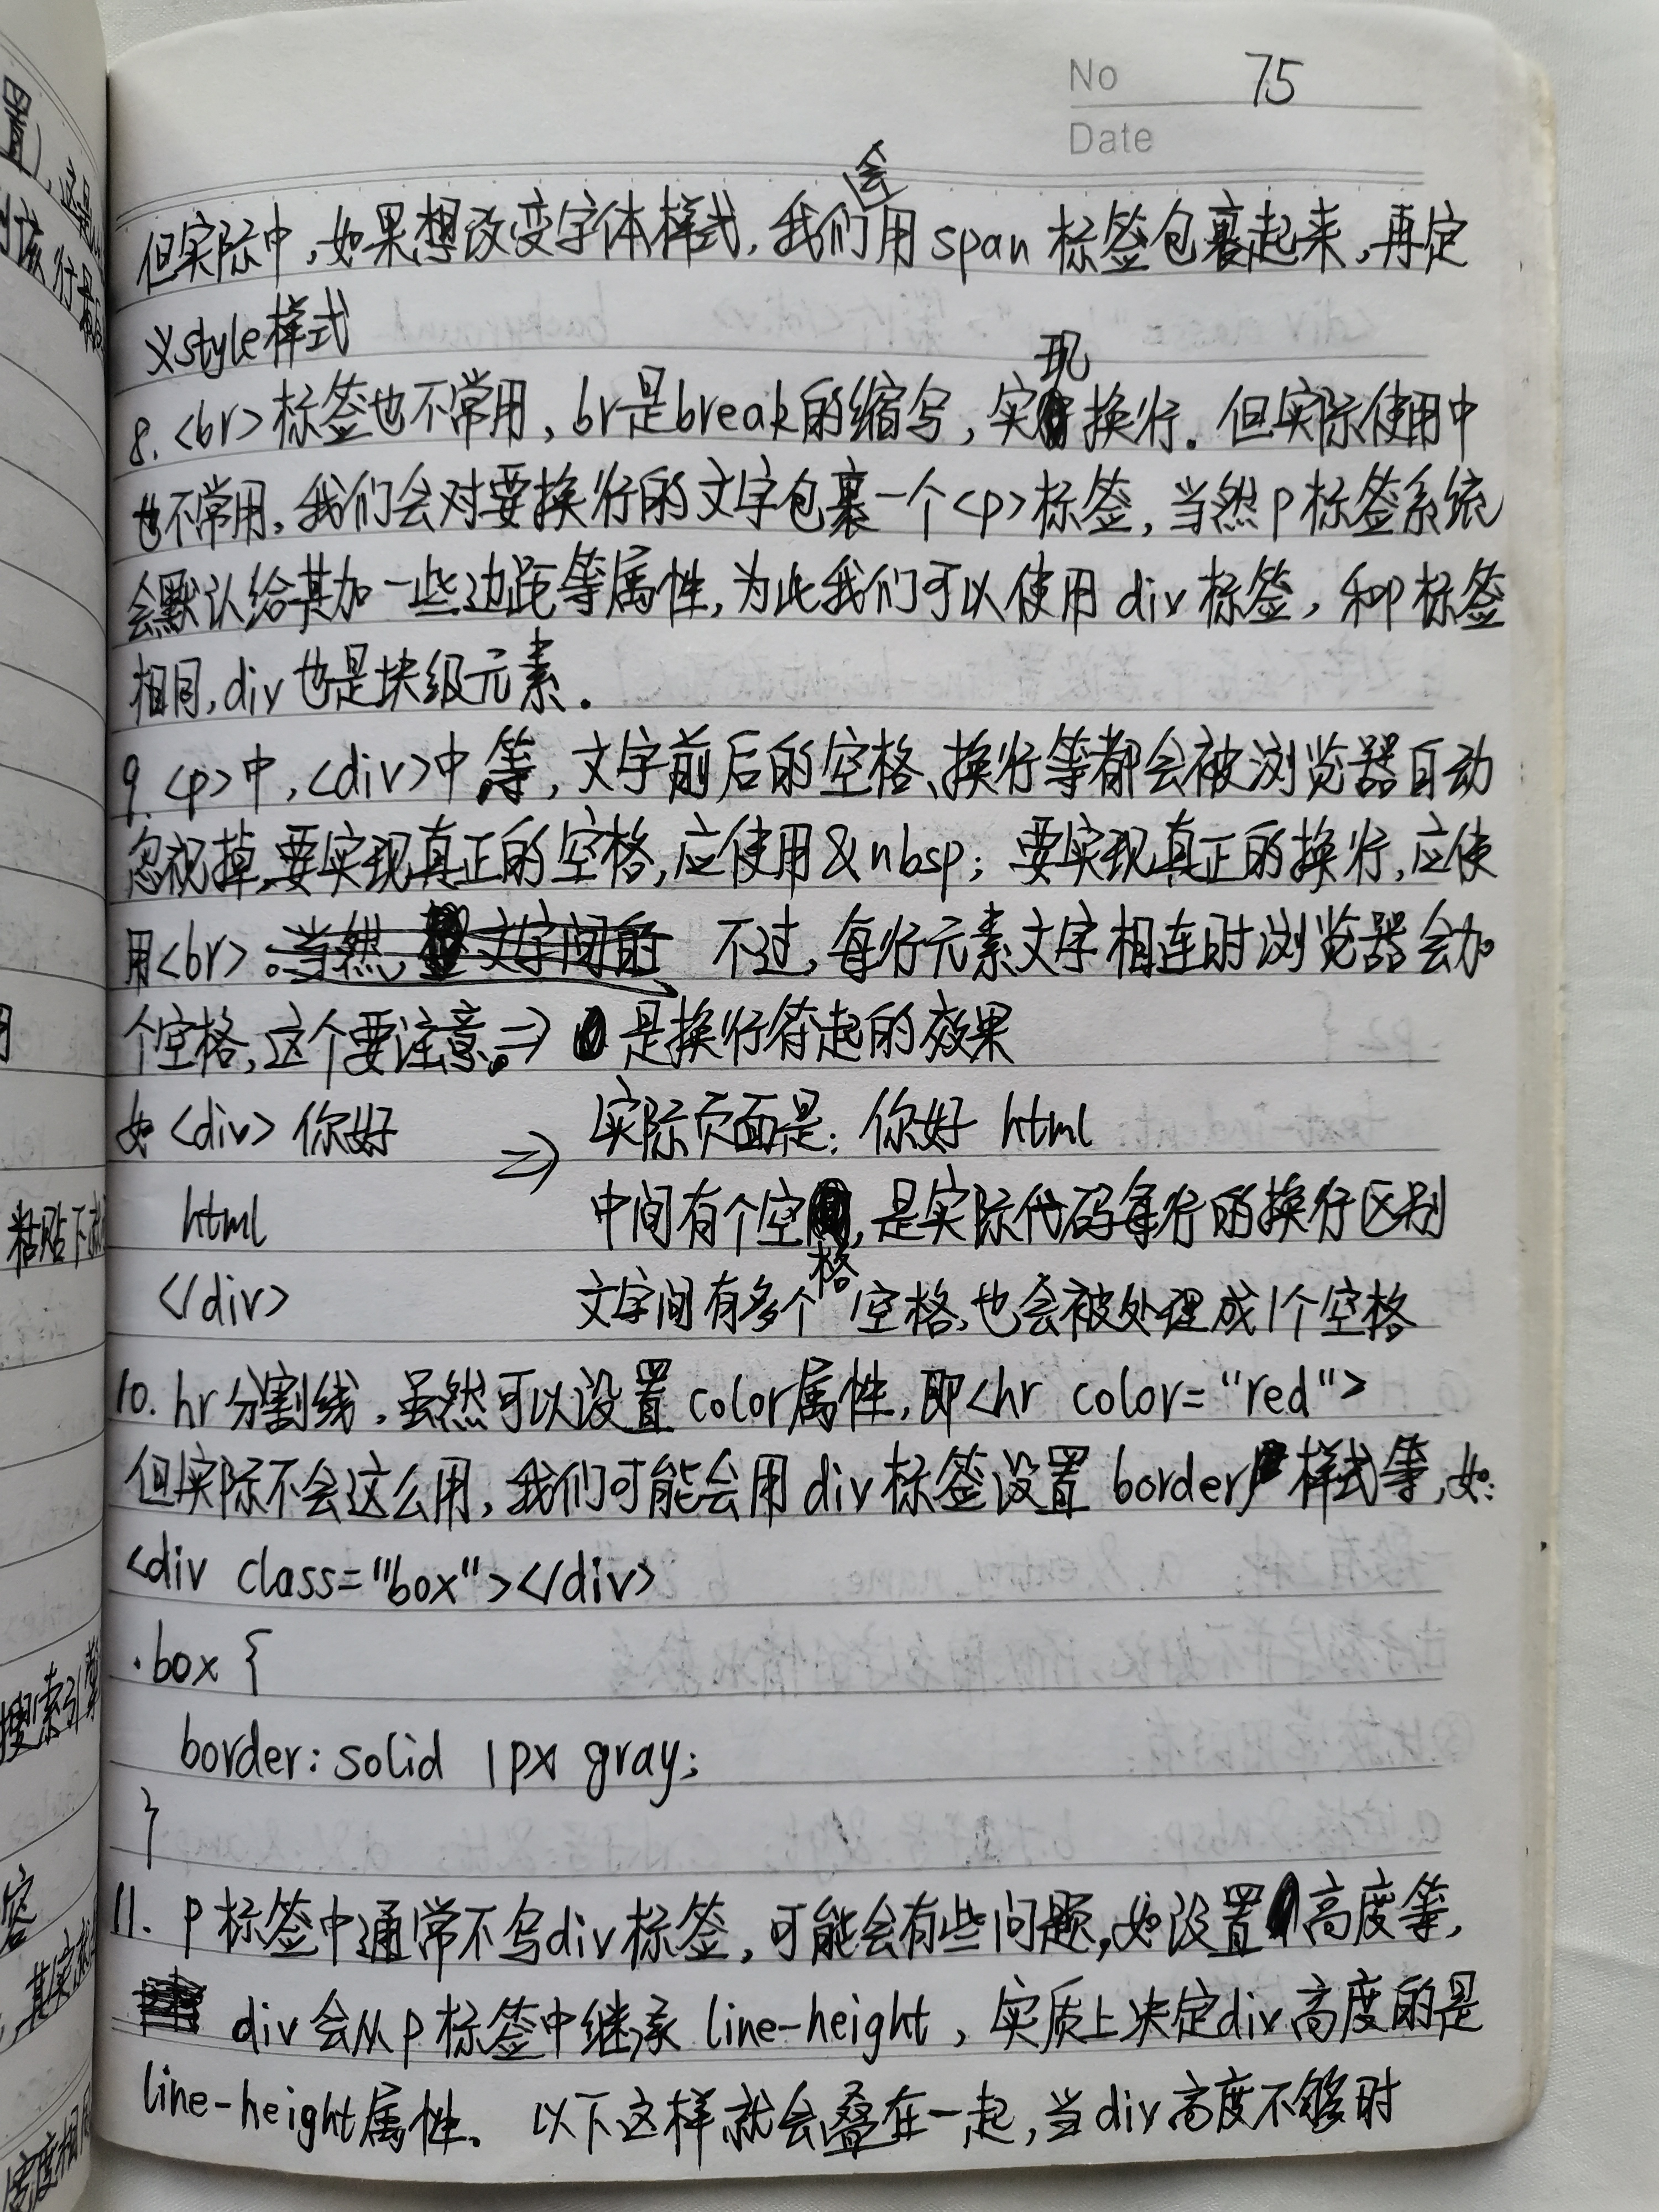 No 75
Date
但实际中,如果想改变字体样式,我们会用span标签包裹起来,再定
义style样式
8.<br>标签也不常用,br是break的缩写,实现换行.但实际使用中
也不常用,我们会对要换行的文字包裹一个<p>标签,当然p标签系统
会默认给其加一些边距等属性,为此我们可以使用div标签,和p标签
相同,div也是块级元素.
9.<p>中,<div>中等,文字前后的空格、换行等都会被浏览器自动
忽视掉,要实现真正的空格,应使用&nbsp;要实现真正的换行,应使
用<br>。不过,每行元素文字相连时浏览器会加
个空格,这个要注意。⇒是换行符起的效果
如<div>你好 ⇒ 实际页面是:你好 html
html 中间有个空格,是实际代码每行的换行区别
</div> 文字间有多个空格,也会被处理成1个空格
10.hr分割线,虽然可以设置color属性,即<hr color="red">
但实际不会这么用,我们可能会用div标签设置border样式等,如:
<div class="box"></div>
.box {
border: solid 1px gray;
}
11. p标签中通常不写div标签,可能会有些问题,如设置高度等,
div会从p标签中继承line-height,实质上决定div高度的是
line-height属性。以下这样就会叠在一起,当div高度不够时
粘贴下
搜索引擎
容
其实
高度相同